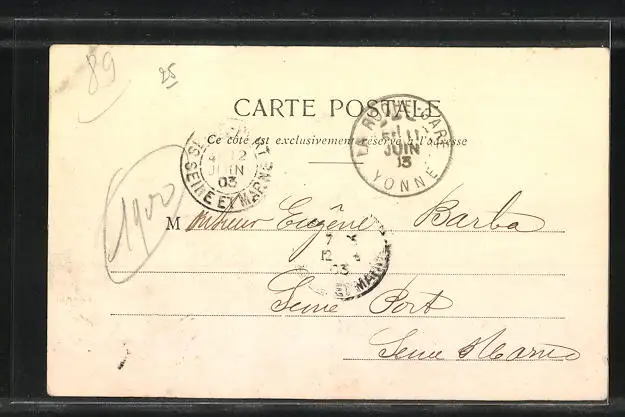 89
25
CARTE POSTALE
Ce côté est exclusivement réservé à l'adresse
LA ROCHE-GARE
11
JUIN
13
YONNE
12
JUIN
03
SEINE ET MARNE
1900
Monsieur Eugène Barba
7
12
03
MARNE
Seine Port
Seine & Marne